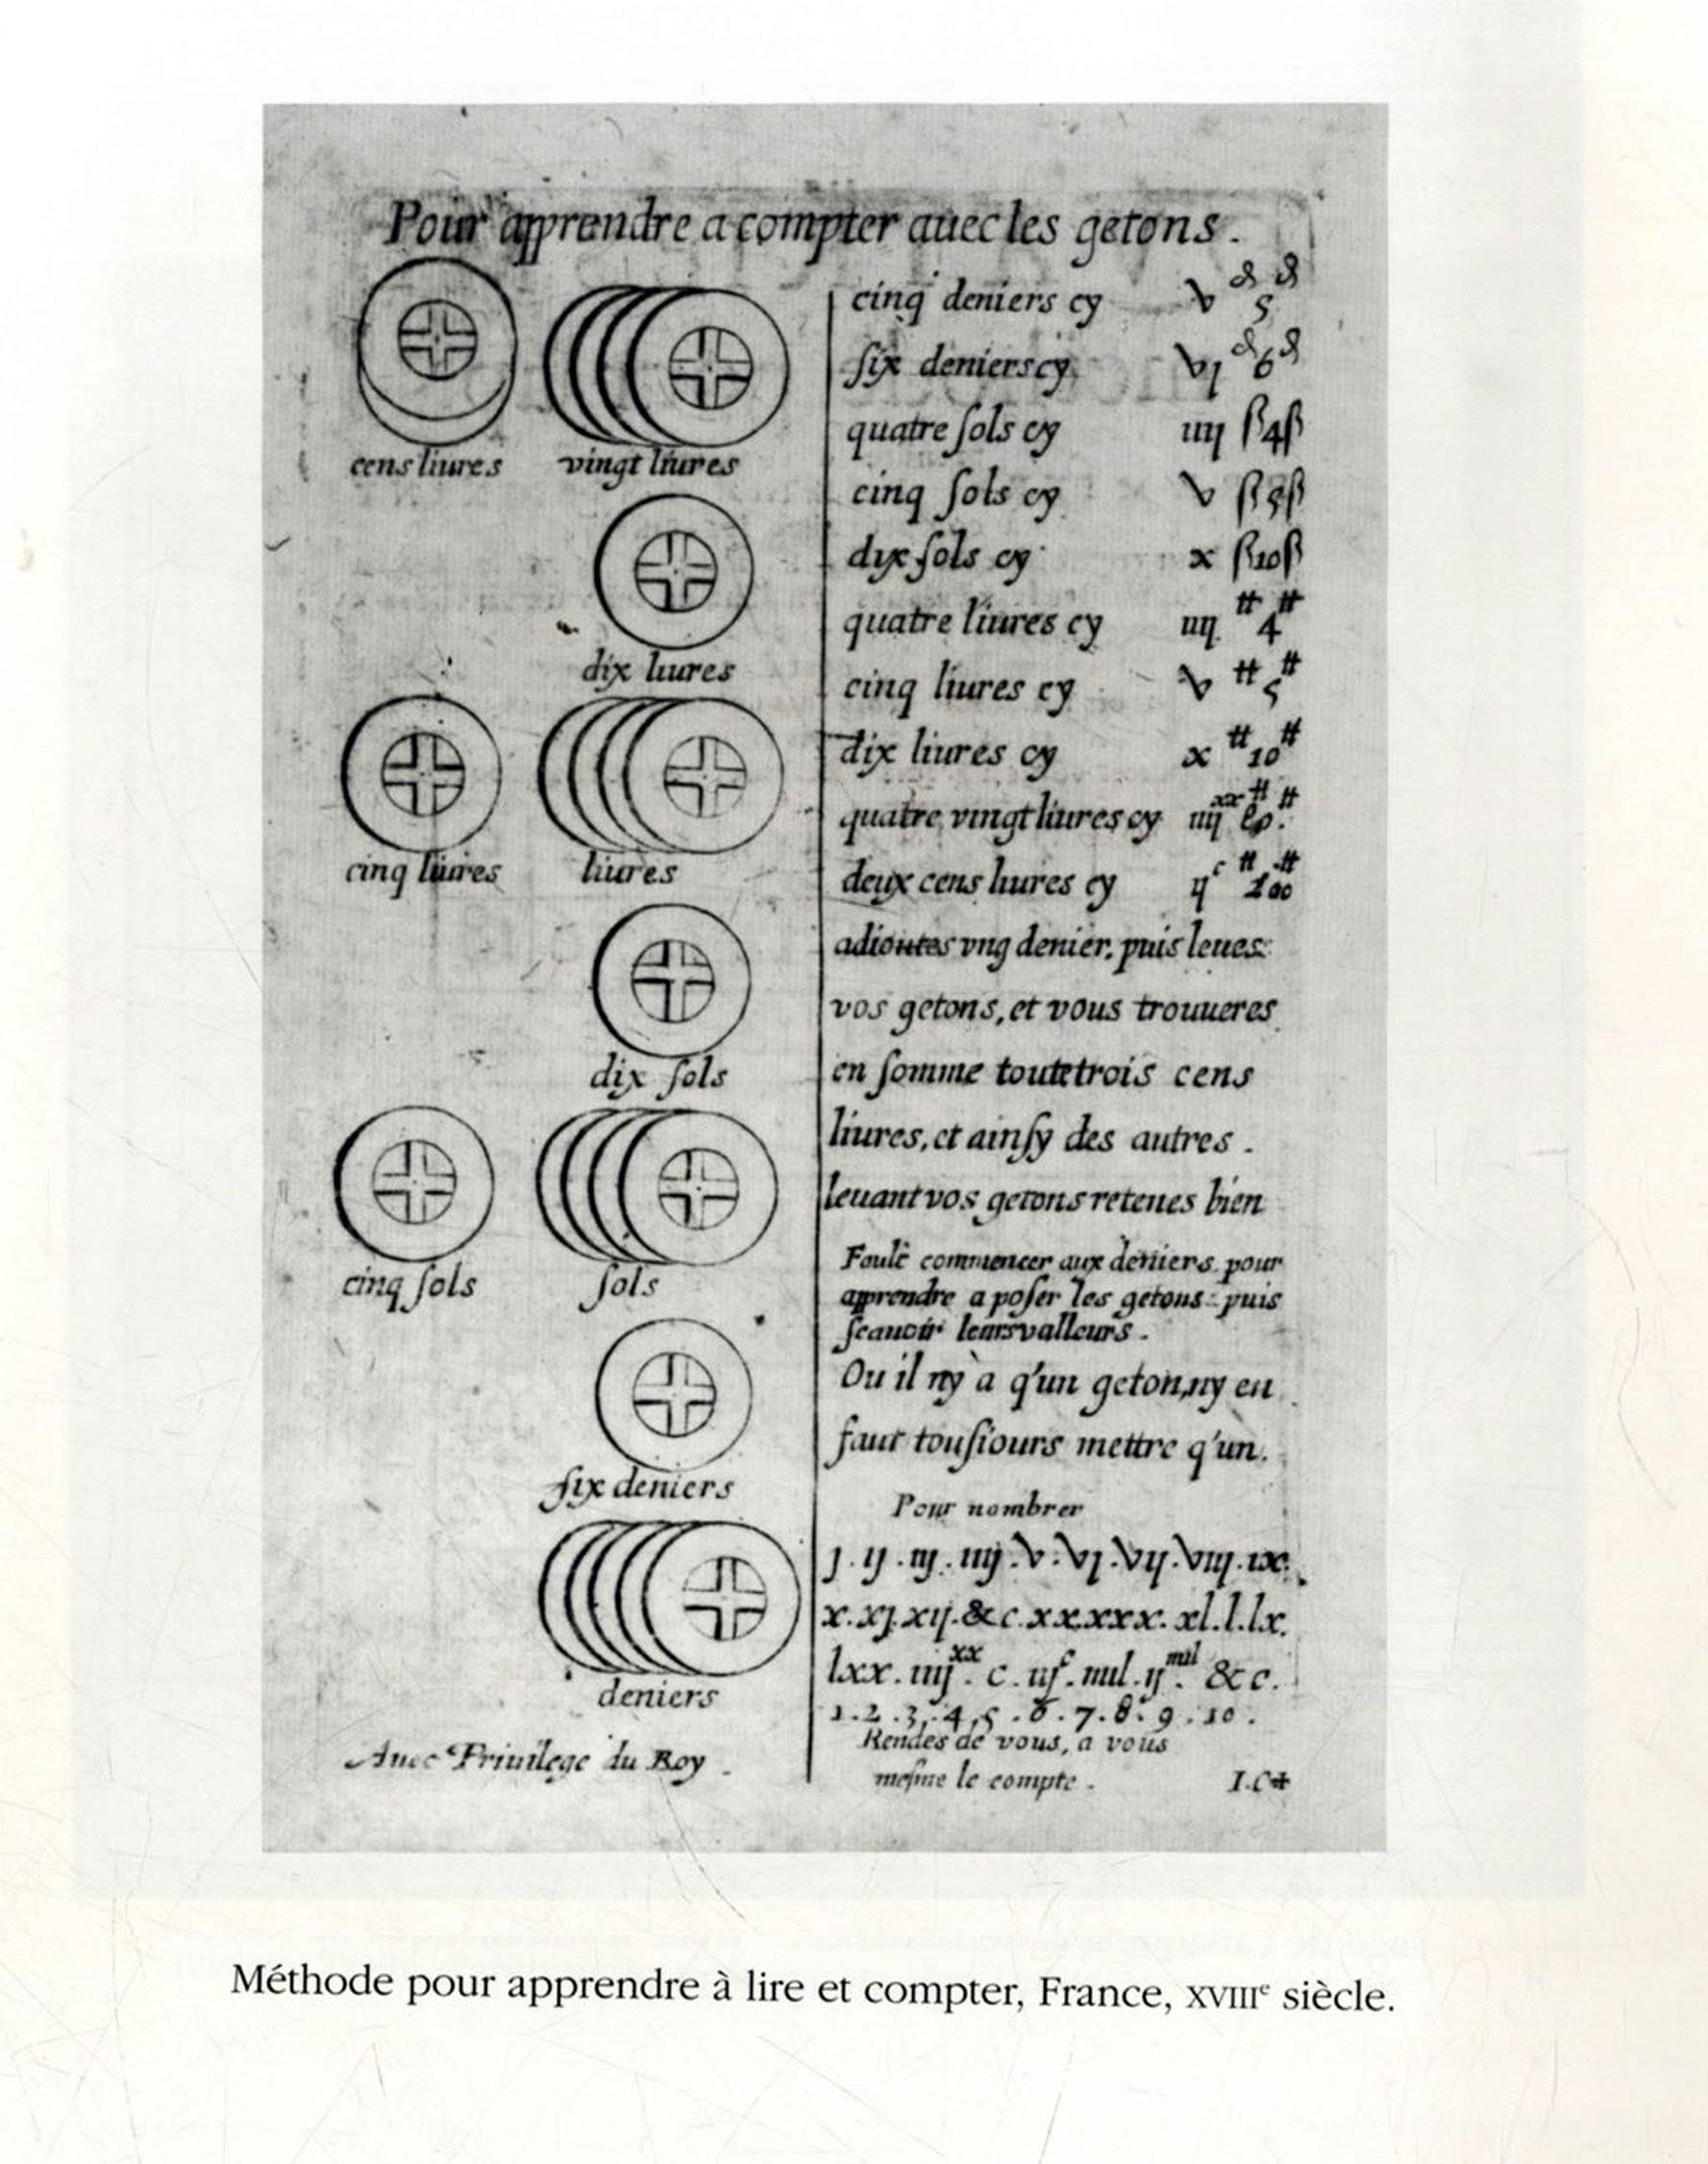 Pour apprendre a compter auec les getons.
cens liures
vingt liures
dix liures
cinq liures
liures
dix ſols
cinq ſols
ſols
ſix deniers
deniers
Auec Priuilege du Roy.
cinq deniers cy v ₰ 5 ₰
ſix deniers cy vj ₰ 6 ₰
quatre ſols cy iiij ß 4 ß
cinq ſols cy v ß 5 ß
dix ſols cy x ß 10 ß
quatre liures cy iiij ₶ 4 ₶
cinq liures cy v ₶ 5 ₶
dix liures cy x ₶ 10 ₶
quatre vingt liures cy iiij xx ₶ 80 ₶
deux cens liures cy ij c ₶ 200 ₶
adioutes vng denier, puis leues
vos getons, et vous trouueres
en ſomme toute trois cens
liures, et ainſy des autres.
leuant vos getons retenes bien
Fault commencer aux deniers pour
apprendre a poſer les getons: puis
ſcauoir leurs valleurs.
Ou il ny a q'un geton, ny en
faut touſiours mettre q'un.
Pour nombrer
j. ij. iij. iiij. v. vj. vij. viij. ix.
x. xj. xij. &c. xx. xxx. xl. l. lx.
lxx. iiij xx. c. ijc. mil. ij mil. &c.
1. 2. 3. 4. 5. 6. 7. 8. 9. 10.
Rendes de vous, a vous
meſme le compte.
I.C
Méthode pour apprendre à lire et compter, France, XVIIIe siècle.